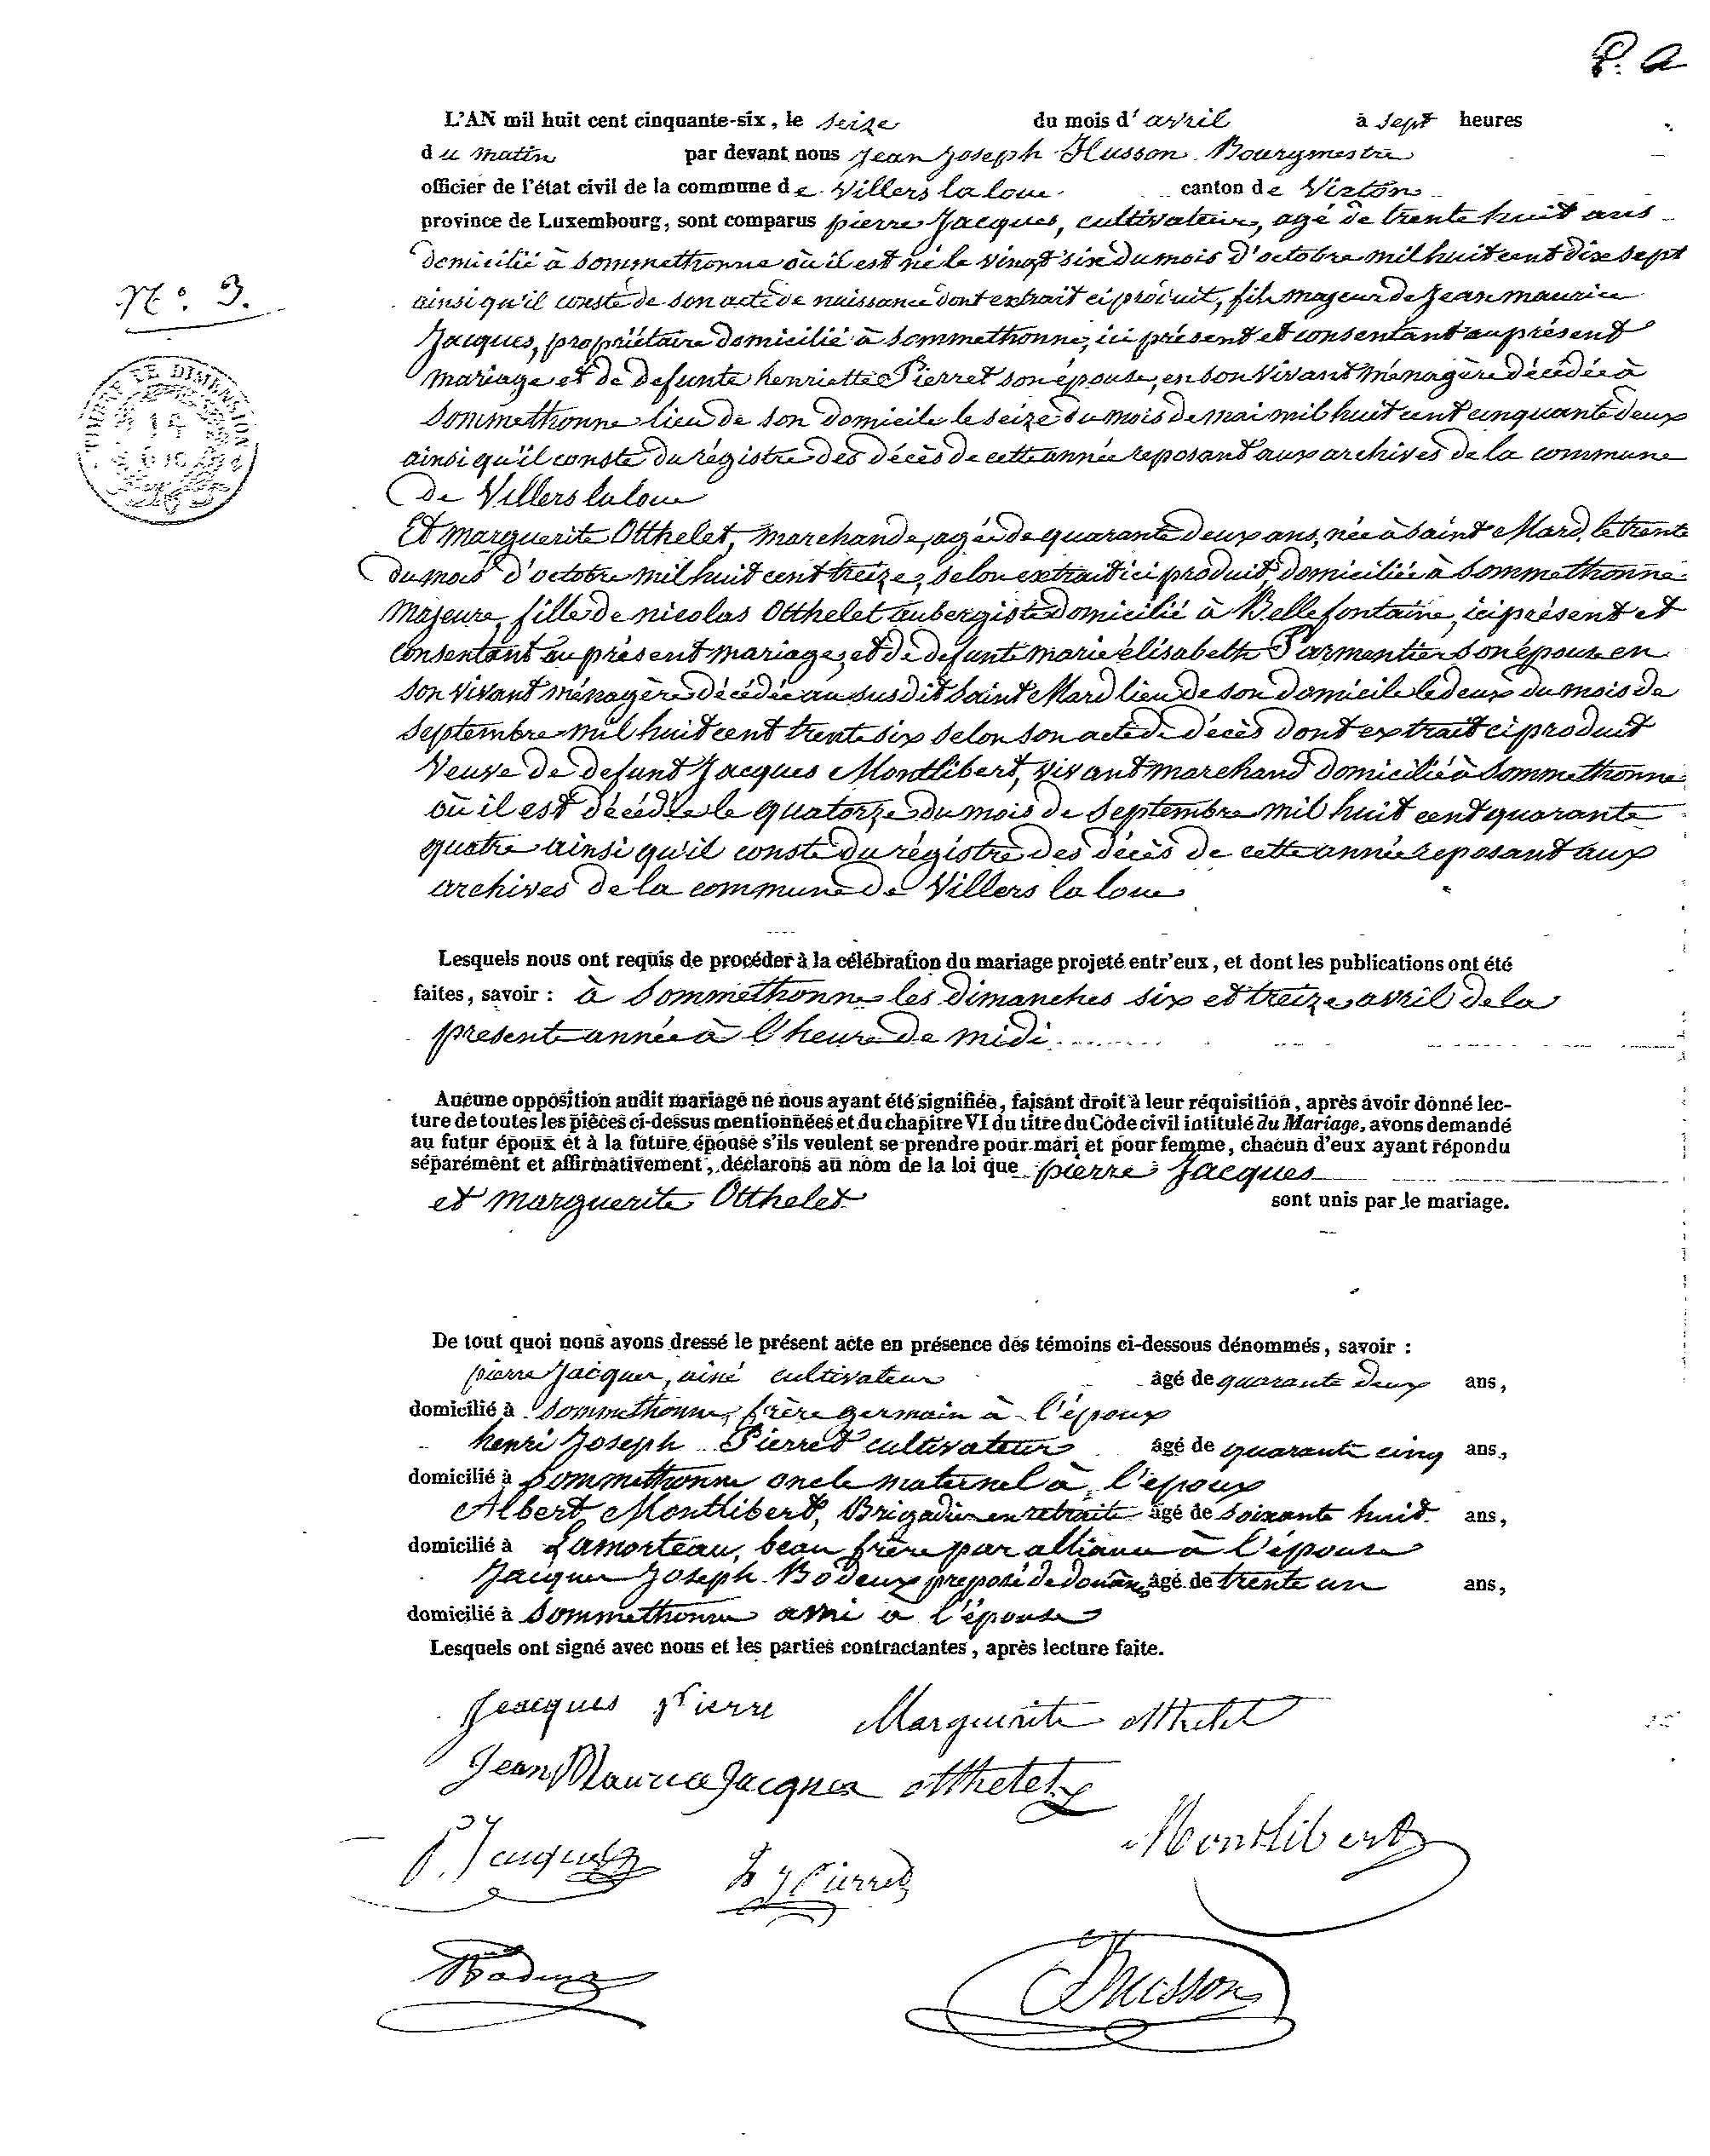 P. A
L'AN mil huit cent cinquante-six, le seize du mois d'avril à sept heures
du matin par devant nous Jean Joseph Husson Bourgmestre
officier de l'état civil de la commune de Villers la loue canton de Virton
province de Luxembourg, sont comparus pierre Jacques, cultivateur, agé de trente huit ans
domicilié à Sommethonne où il est né le vingt six du mois d'octobre mil huit cent dix sept
N.º 3.
ainsi qu'il conste de son acte de naissance dont extrait ci produit, fils majeur de Jean maurice
Jacques, propriétaire domicilié à Sommethonne, ici présent et consentant au présent
mariage et de defunte henriette Pierret son épouse, en son vivant ménagère décédée à
TIMBRE DE DIMENSION
Sommethonne lieu de son domicile le seize du mois de mai mil huit cent cinquante deux
ainsi qu'il conste du régistre des décès de cette année reposant aux archives de la commune
de Villers la loue
Et marguerite Otthelet, marchande, agée de quarante deux ans, née à saint Mard, le trente
du mois d'octobre mil huit cent treize, selon extrait ici produit, domiciliée à Sommethonne
majeure, fille de nicolas Otthelet aubergiste domicilié à Bellefontaine, ici présent et
consentant au présent mariage, et de defunte marie élisabeth Parmentier son épouse en
son vivant ménagère décédée au susdit Saint Mard lieu de son domicile le deux du mois de
septembre mil huit cent trente six selon son acte de décès dont extrait ci produit
Veuve de defunt Jacques Montlibert, vivant marchand domicilié à Sommethonne
où il est décédé le quatorze du mois de septembre mil huit cent quarante
quatre ainsi qu'il conste du régistre des décès de cette année reposant aux
archives de la commune de Villers la loue
Lesquels nous ont requis de procéder à la célébration du mariage projeté entr'eux, et dont les publications ont été
faites, savoir : à Sommethonne les dimanches six et treize avril de la
presente année à l'heure de midi
Aucune opposition audit mariage ne nous ayant été signifiée, faisant droit à leur réquisition, après avoir donné lec-
ture de toutes les pièces ci-dessus mentionnées et du chapitre VI du titre du Code civil intitulé du Mariage, avons demandé
au futur époux et à la future épouse s'ils veulent se prendre pour mari et pour femme, chacun d'eux ayant répondu
séparément et affirmativement, déclarons au nom de la loi que pierre Jacques
et marguerite Otthelet sont unis par le mariage.
De tout quoi nous avons dressé le présent acte en présence des témoins ci-dessous dénommés, savoir :
pierre Jacques, ainé cultivateur âgé de quarante deux ans,
domicilié à Sommethonne, frère germain à l'époux
henri Joseph Pierret cultivateur âgé de quarante cinq ans,
domicilié à Sommethonne oncle maternel à l'epoux
Albert Montlibert, Brigadier en retraite âgé de soixante huit ans,
domicilié à Lamorteau, beau frère par alliance à l'épouse
Jacques Joseph Bodeux preposé de douanes âgé de trente un ans,
domicilié à Sommethonne ami a l'épouse
Lesquels ont signé avec nous et les parties contractantes, après lecture faite.
Jacques Pierre Marguerite otthelet
Jean Maurice Jacques otthelet
Montlibert
P. Jacques h J Pierret
Bodeux Husson